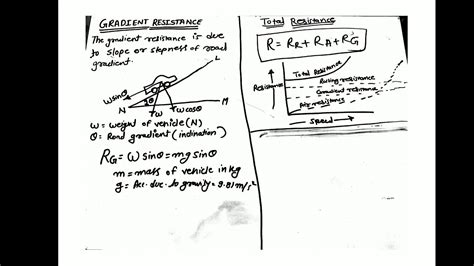 GRADIENT RESISTANCE
The gradient resistance is due
to slope or stepness of road
gradient.
L
wsinθ
θ
N
w
wcosθ
M
ω = weight of vehicle (N)
θ = Road gradient (inclination)
RG = ω sinθ = mg sinθ
m = mass of vehicle in kg
g = Acc. due to gravity = 9.81 m/s²
Total Resistance
R = RR + RA + RG
Resistance
Total Resistance
Rolling resistance
Gradient resistance
Air resistance
Speed →